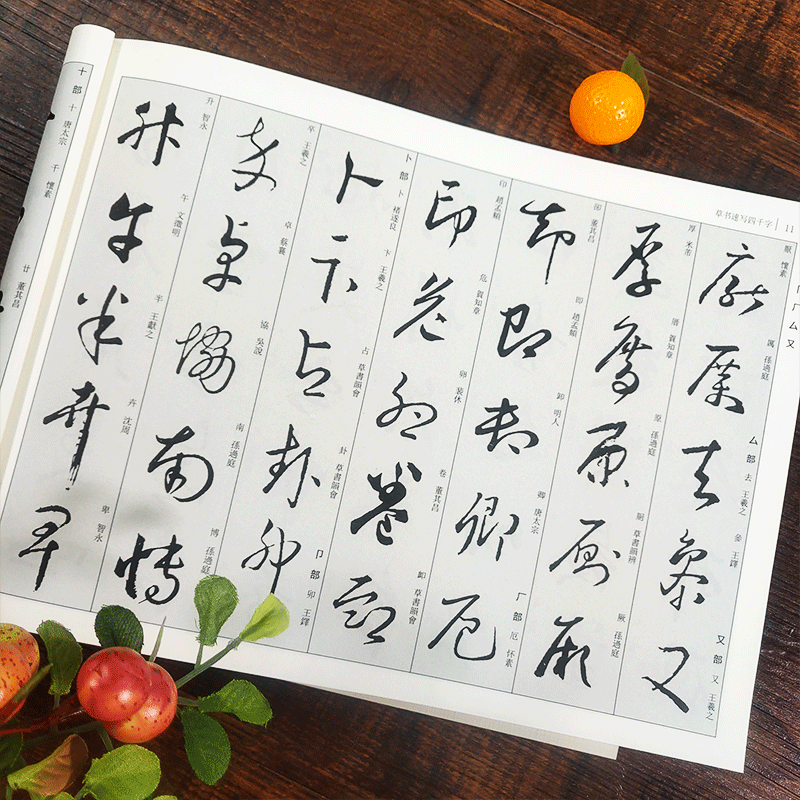 草书速写四千字 11
厂厶又
十部 十 唐太宗
千 懷素
廿 董其昌
升 智永
午 文徵明
半 王獻之
卉 沈周
卑 智永
卒 王羲之
卓 蔡襄
協 吳說
南 孫過庭
博 孫過庭
卜部 卜 褚遂良
卞 王羲之
占 草書韻會
卦 草書韻會
卩部 卯 王鐸
印 趙孟頫
危 賀知章
卵 裴休
卷 董其昌
卸 草書韻會
董其昌
即 趙孟頫
卸 明人
卿 唐太宗
厂部 厄 怀素
厚 米芾
賀知章
原 孫過庭
草書韻辨
厥 孫過庭
厭 懷素
厲 孫過庭
厶部 去 王羲之
王鐸
又部 又 王羲之